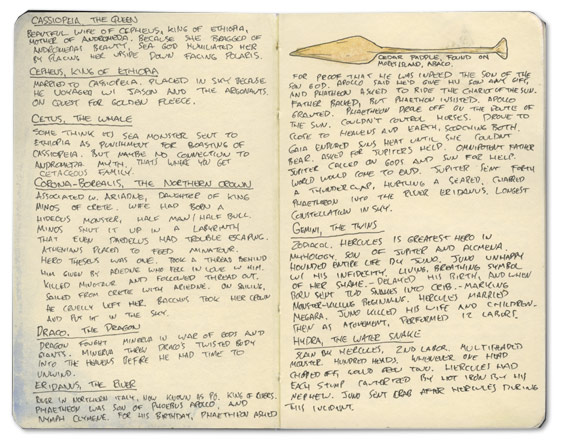 CASSIOPEIA, THE QUEEN
BEAUTIFUL WIFE OF CEPHEUS, KING OF ETHIOPIA,
MOTHER OF ANDROMEDA. BECAUSE SHE BRAGGED OF
ANDROMEDAS BEAUTY, SEA GOD HUMILIATED HER
BY PLACING HER UPSIDE DOWN FACING POLARIS.
CEPHEUS, KING OF ETHIOPIA
MARRIED TO CASSIOPEIA. PLACED IN SKY BECAUSE
HE VOYAGED W/ JASON AND THE ARGONAUTS
ON QUEST FOR GOLDEN FLEECE.
CETUS, THE WHALE
SOME THINK ITS SEA MONSTER SENT TO
ETHIOPIA AS PUNISHMENT FOR BOASTING OF
CASSIOPEIA. BUT MAYBE NO CONNECTION TO
ANDROMEDA MYTH, THATS WHAT YOU GET
CETACEOUS FAMILY.
CORONA-BOREALIS, THE NORTHERN CROWN
ASSOCIATED W. ARIADNE, DAUGHTER OF KING
MINOS OF CRETE. WIFE HAD BORN A
HIDEOUS MONSTER, HALF MAN/HALF BULL.
MINOS SHUT IT UP IN A LABYRINTH
THAT EVEN DAEDELUS HAD TROUBLE ESCAPING.
ATHENIANS PLACED TO FEED MINATOUR.
HERO THESEUS WAS ONE. TOOK A THREAD BEHIND
HIM GIVEN BY ARIEDNE WHO FELL IN LOVE W/ HIM,
KILLED MINOTAUR AND FOLLOWED THREAD OUT.
SAILED FROM CRETE WITH ARIEDNE. ON SAILING,
HE CRUELLY LEFT HER. BACCHUS TOOK HER CROWN
AND PUT IT IN THE SKY.
DRACO, THE DRAGON
DRAGON FOUGHT MINERVA IN WAR OF GODS AND
GIANTS. MINERVA THREW DRACO'S TWISTED BODY
INTO THE HEAVENS BEFORE HE HAD TIME TO
UNWIND.
ERIDANUS, THE RIVER
RIVER IN NORTHERN ITALY, NOW KNOWN AS PO. KING OF RIVERS.
PHAETHEON WAS SON OF PHOEBUS APOLLO, AND
NYMPH CLYMENE. FOR HIS BIRTHDAY, PHAETHEON ASKED
CEDAR PADDLE, FOUND ON
ISLAND, ABACO.
FOR PROOF THAT HE WAS INDEED THE SON OF THE
SUN GOD. APOLLO SAID HE'D GIVE HIS SON ANY GIFT,
AND PHAETHEON ASKED TO RIDE THE CHARIOT OF THE SUN.
FATHER BALKED, BUT PHAETHON INSISTED. APOLLO
GRANTED. PHAETHEON DROVE OFF ON THE ROUTE OF
THE SUN. COULDN'T CONTROL HORSES. DROVE TO
CLOSE TO HEAVENS AND EARTH, SCORCHING BOTH.
GAIA ENDURED SUNS HEAT UNTIL SHE COULDN'T
BEAR. ASKED FOR JUPITER'S HELP. OMNIPOTENT FATHER
JUPITER CALLED ON GODS AND SUN FOR HELP.
WORLD WOULD COME TO END. JUPITER SENT FORTH
A THUNDERCLAP, HURTLING A SEARED, CHARRED
PHAETHEON INTO THE RIVER ERIDANUS, LONGEST
CONSTELLATION IN SKY.
GEMINI, THE TWINS
ZODIACAL. HERCULES IS GREATEST HERO IN
MYTHOLOGY, SON OF JUPITER AND ALCMENA.
HOUNDED ENTIRE LIFE BY JUNO. JUNO UNHAPPY
W/ HIS INFIDELITY, LIVING, BREATHING SYMBOL
OF HER SHAME. - DELAYED HIS BIRTH, AND WHEN
BORN SENT TWO SNAKES INTO CRIB. - MARKING
MONSTER-KILLING BEGINNINGS. HERCULES MARRIED
MEGARA. JUNO KILLED HIS WIFE AND CHILDREN.
THEN AS ATONEMENT, PERFORMED 12 LABORS.
HYDRA, THE WATER SNAKE
SLAIN BY HERCULES, 2ND LABOR. MULTIHEADED
MONSTER. HUNDRED HEADS. WHENEVER ONE HEAD
CHOPPED OFF, COULD GROW TWO. HERCULES HAD
EACH STUMP CAUTERIZED BY HOT IRON BY HIS
NEPHEW. JUNO SENT CRAB AFTER HERCULES DURING
THIS INCIDENT.